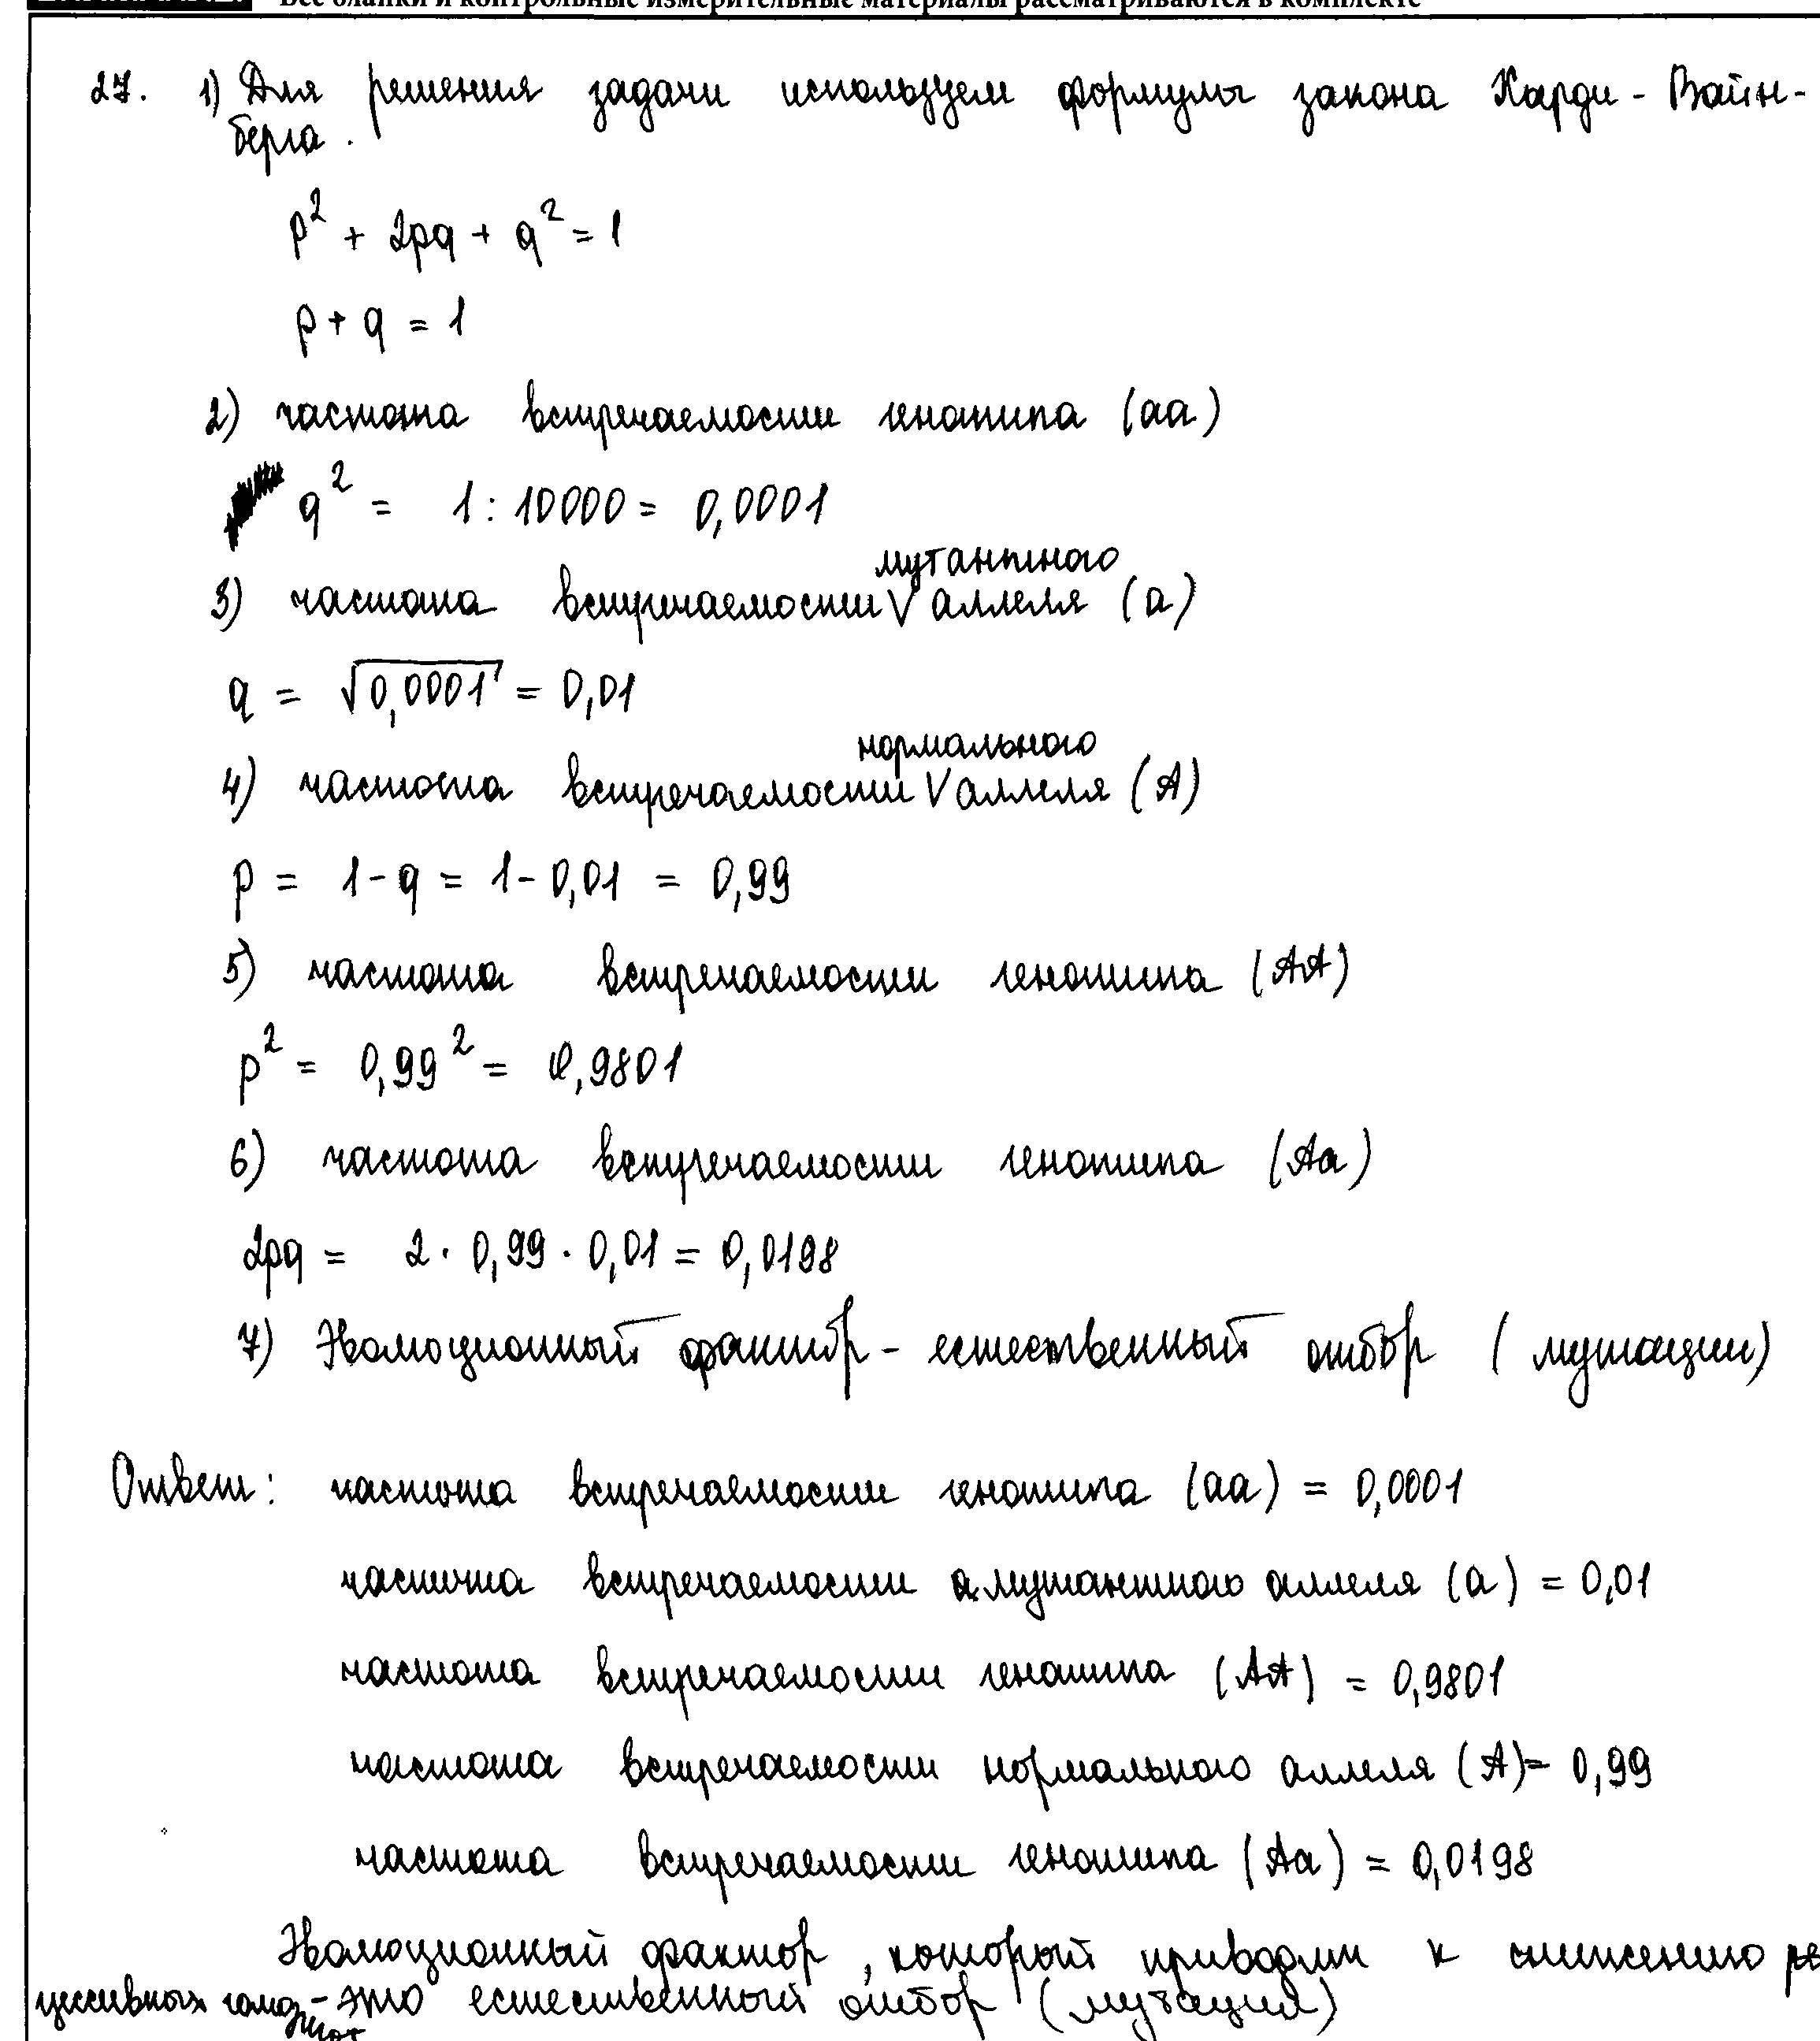 Все бланки и контрольные измерительные материалы рассматриваются в комплекте
27. 1) Для решения задачи используем формулы закона Харди - Вайн-
берга.
p² + 2pq + q² = 1
p + q = 1
2) частота встречаемости генотипа (aa)
q² = 1 : 10000 = 0,0001
мутантного
3) частота встречаемости V аллеля (a)
q = √0,0001 = 0,01
нормального
4) частота встречаемости V аллеля (A)
p = 1 - q = 1 - 0,01 = 0,99
5) частота встречаемости генотипа (AA)
p² = 0,99² = 0,9801
6) частота встречаемости генотипа (Aa)
2pq = 2 · 0,99 · 0,01 = 0,0198
7) Эволюционный фактор - естественный отбор (мутации)
Ответ: частота встречаемости генотипа (aa) = 0,0001
частота встречаемости мутантного аллеля (a) = 0,01
частота встречаемости генотипа (AA) = 0,9801
частота встречаемости нормального аллеля (A) = 0,99
частота встречаемости генотипа (Aa) = 0,0198
Эволюционный фактор, который приводит к снижению ре
цессивных гомоз - это естественный отбор (мутация)
игот